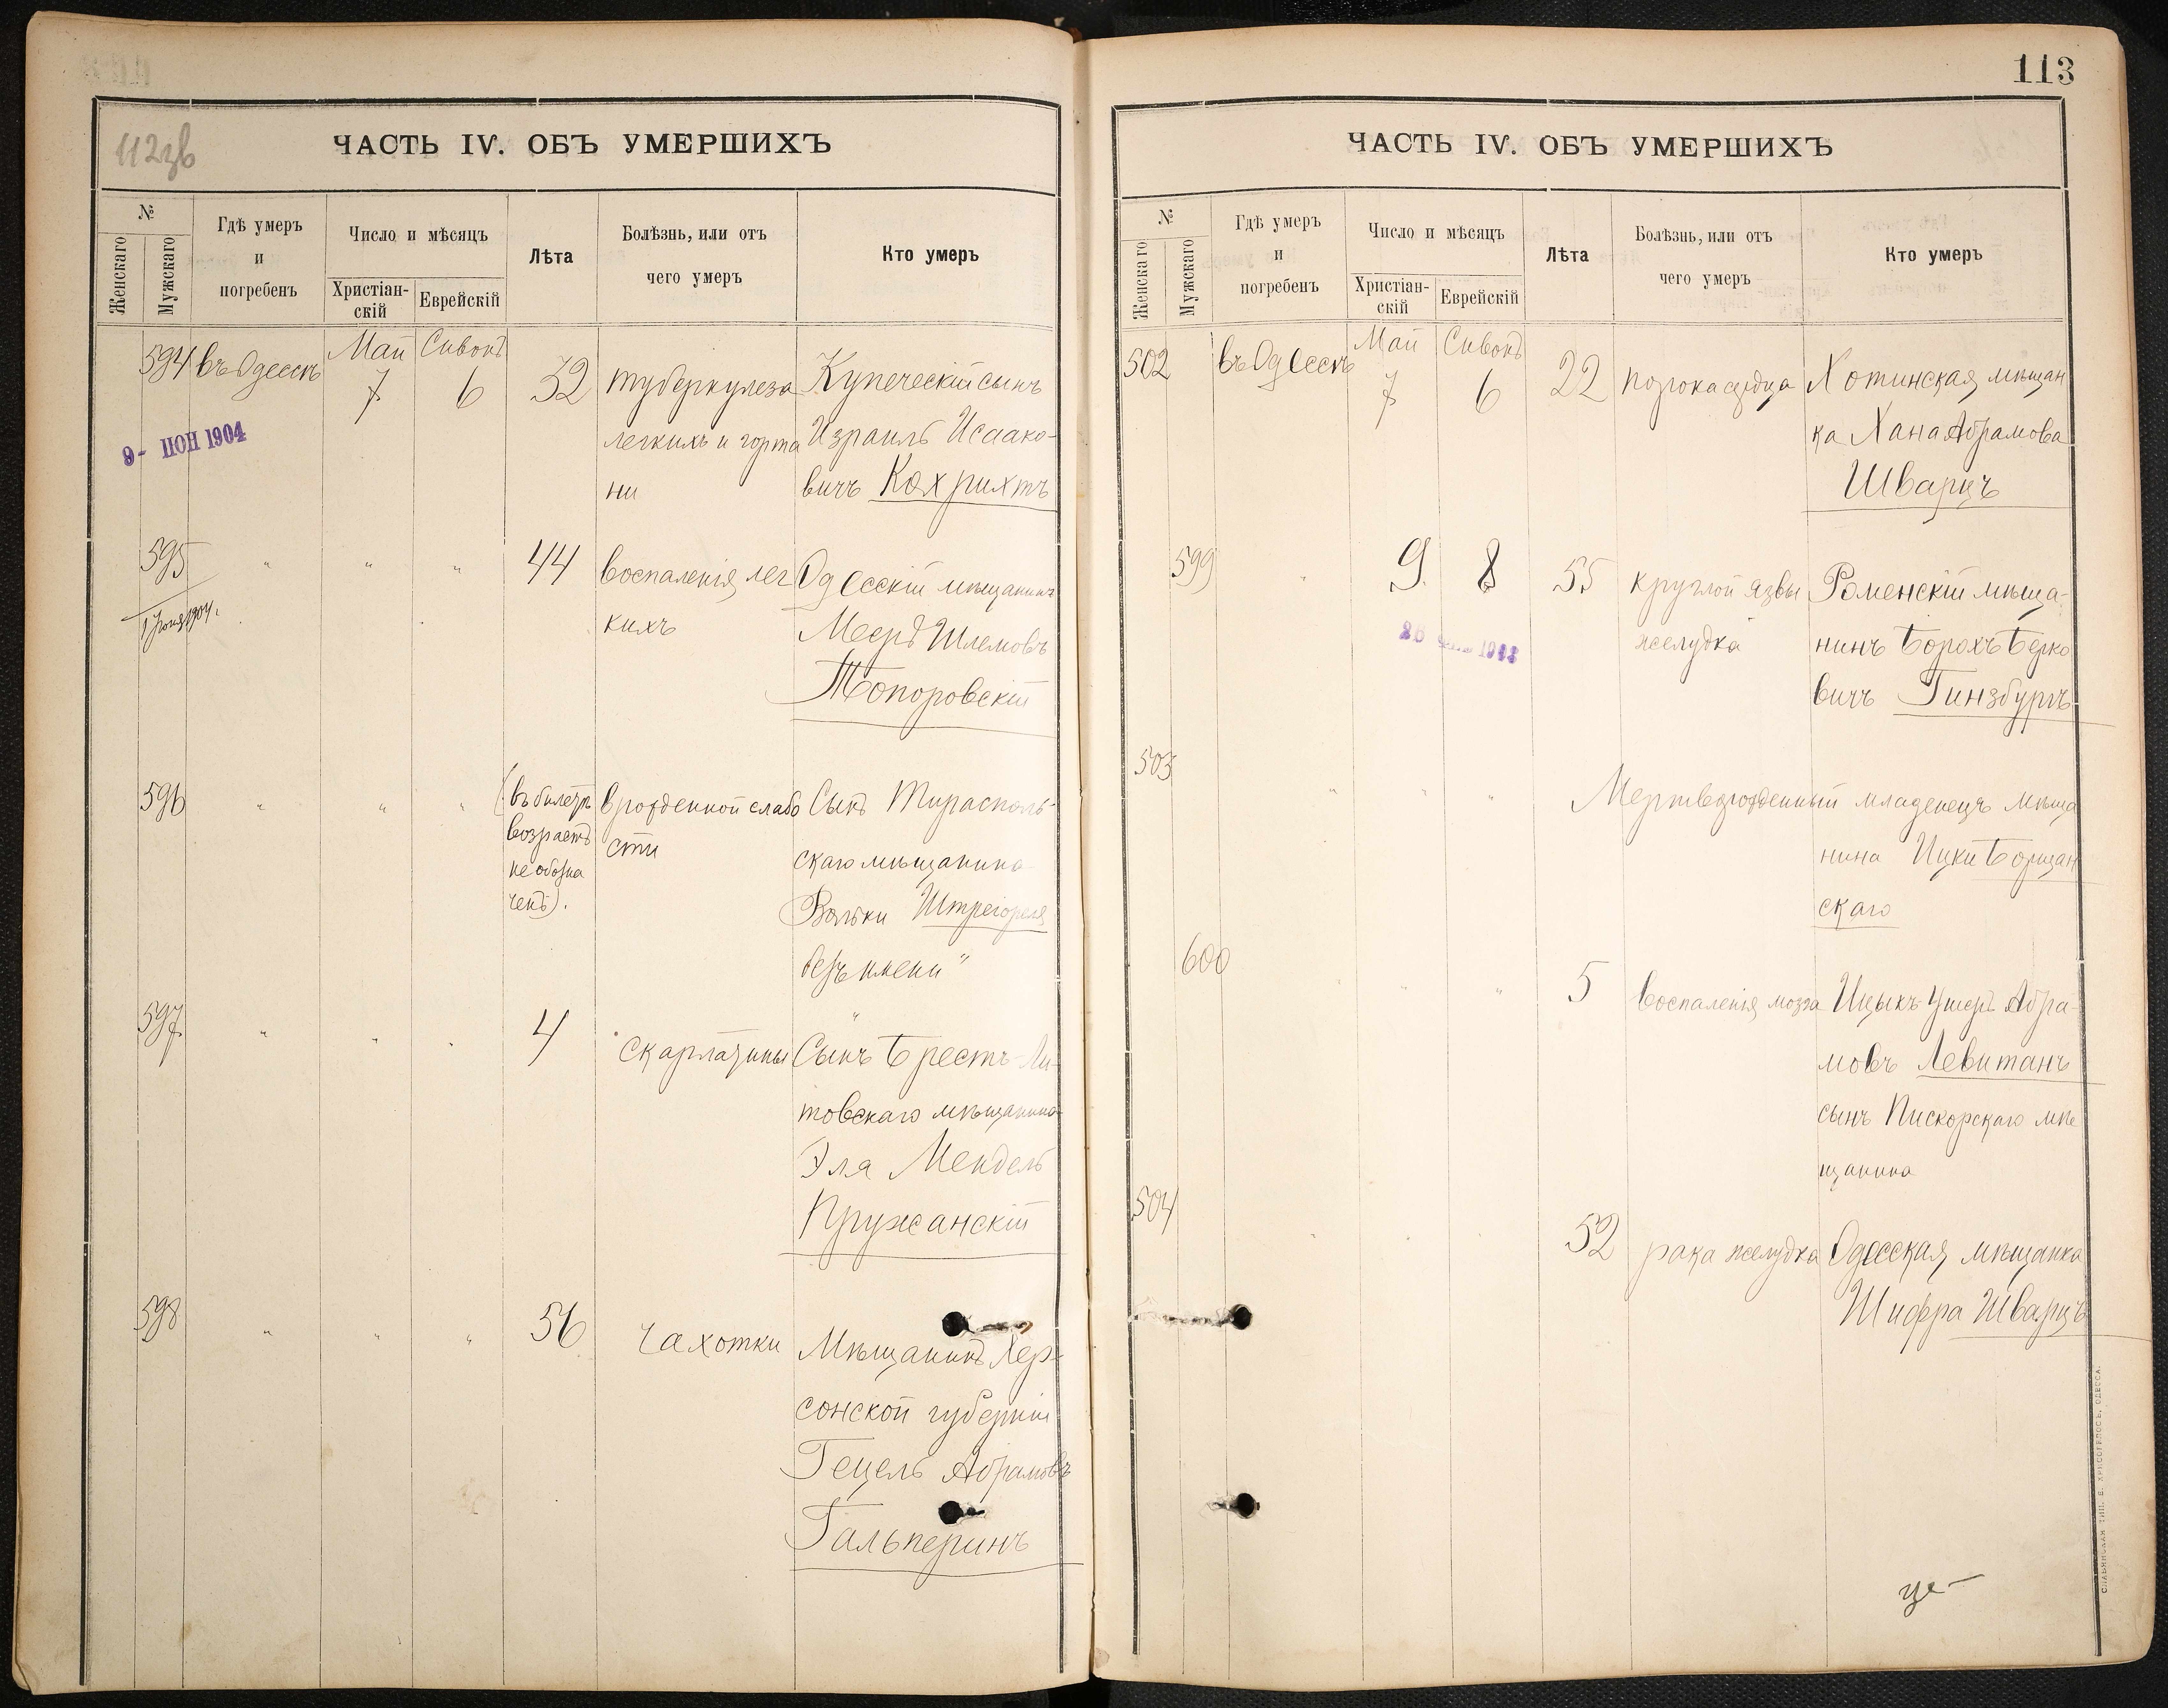 112зв
ЧАСТЬ IV. ОБЪ УМЕРШИХЪ
№
Женскаго
Мужскаго
Гдѣ умеръ
и
погребенъ
Число и мѣсяцъ
Христіан-
скій
Еврейскій
Лѣта
Болѣзнь, или отъ
чего умеръ
Кто умеръ
594 въ Одессѣ Май 7 Сивонъ 6 32 туберкулеза Купеческій сынъ
легкихъ и горта Израиль Исаако-
ни вичъ Кохрихтъ
9- ІЮН 1904
595 " " " 44 воспаленія лег Одесскій мѣщанинъ
кихъ Мееръ Шлемовъ
Топоровскій
1 Іюня 1904 г.
596 " " " (въ билетѣ врожденной слабо Сынъ Тирасполь-
возрастъ сти скаго мѣщанина
не обозна Вольки
ченъ). безъ имени "
597 " " " 4 скарлатины Сынъ Брестъ-Ли-
товскаго мѣщанина
Эля Мендель
Пружанскій
598 " " " 56 чахотки Мѣщанинъ Хер-
сонской губерніи
Гецель Абрамовъ
Гальперинъ
113
ЧАСТЬ IV. ОБЪ УМЕРШИХЪ
№
Женскаго
Мужскаго
Гдѣ умеръ
и
погребенъ
Число и мѣсяцъ
Христіан-
скій
Еврейскій
Лѣта
Болѣзнь, или отъ
чего умеръ
Кто умеръ
502 въ Одессѣ Май 7 Сивонъ 6 22 порока сердца Хотинская мѣщан
ка Хана Абрамова
Шварцъ
599 " 9 8 55 круглой язвы Роменскій мѣща-
желудка нинъ Борохъ Берко
вичъ Гинзбургъ
503 " " " Мертворожденный младенецъ мѣща
нина Ицки Борщан
скаго
600 " " 5 воспаленія мозга Ицыкъ-Ушеръ Абра-
мовъ Левитанъ
сынъ Пискорскаго мѣ
щанина
504 " " " 52 рака желудка Одесская мѣщанка
Шифра Шварцъ
СЛАВЯНСКАЯ ТИП. Е. ХРИСОГЕЛОСЪ, ОДЕССА.